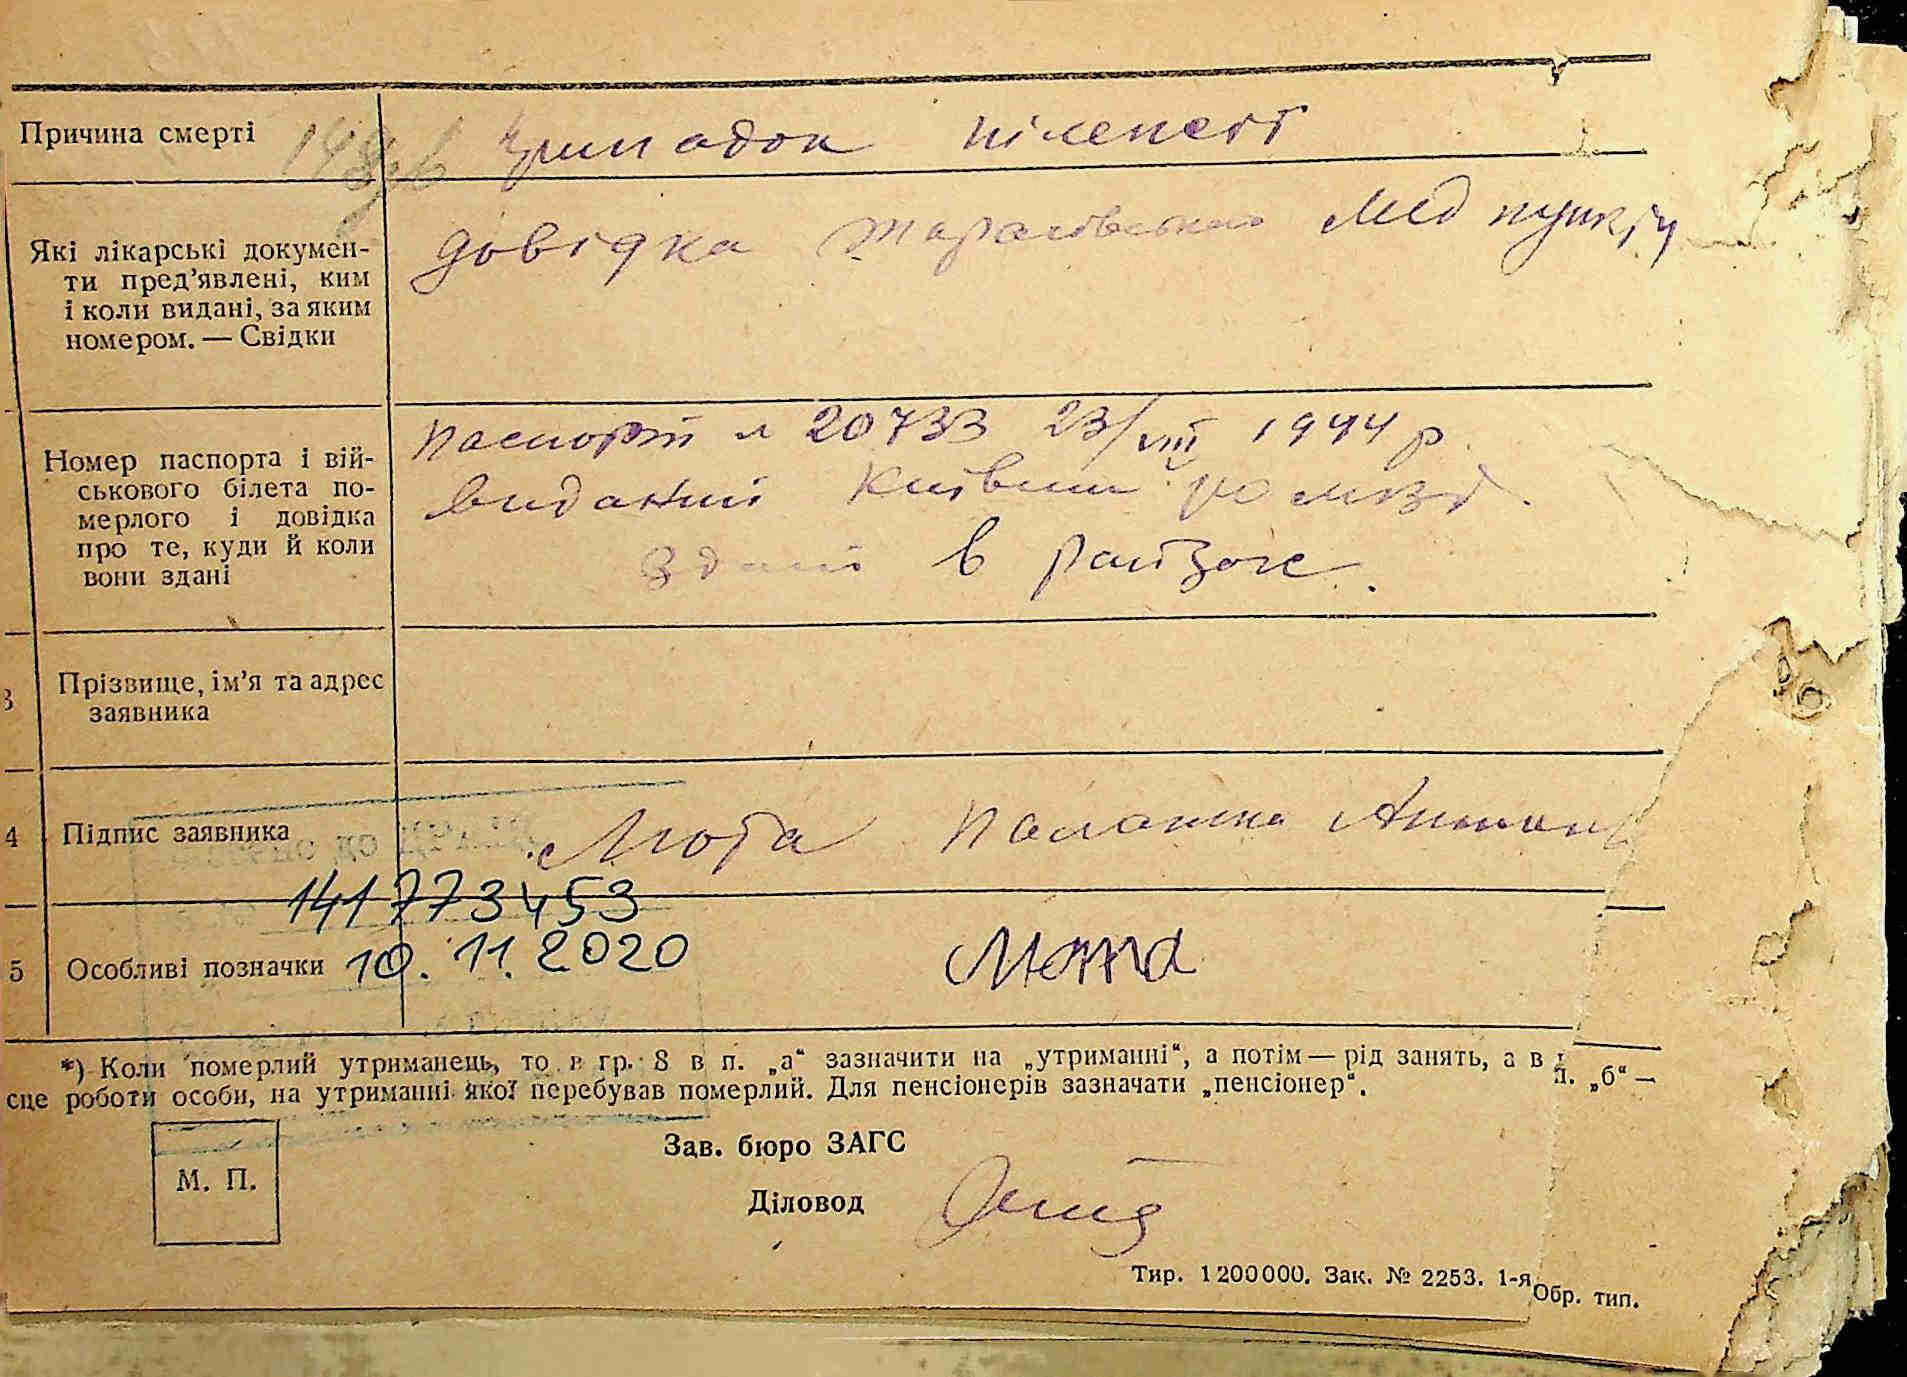 Причина смерті
припадок пілепсії
Які лікарські докумен-
ти пред'явлені, ким
і коли видані, за яким
номером. — Свідки
довідка Тарасівського Мед пункту
Номер паспорта і вій-
ськового білета по-
мерлого і довідка
про те, куди й коли
вони здані
Паспорт № 20733 23/VIII 1944 р
виданий Київським
здані в райЗагс.
3 Прізвище, ім'я та адрес
заявника
4 Підпис заявника
Люта Палажка
141773453
5 Особливі позначки
10.11.2020
Люта
*) Коли померлий утриманець, то в гр. 8 в п. „а“ зазначити на „утриманні“, а потім — рід занять, а в п. „б“ —
сце роботи особи, на утриманні якої перебував померлий. Для пенсіонерів зазначати „пенсіонер“.
М. П.
Зав. бюро ЗАГС
Діловод
Тир. 1200000. Зак. № 2253. 1-я Обр. тип.